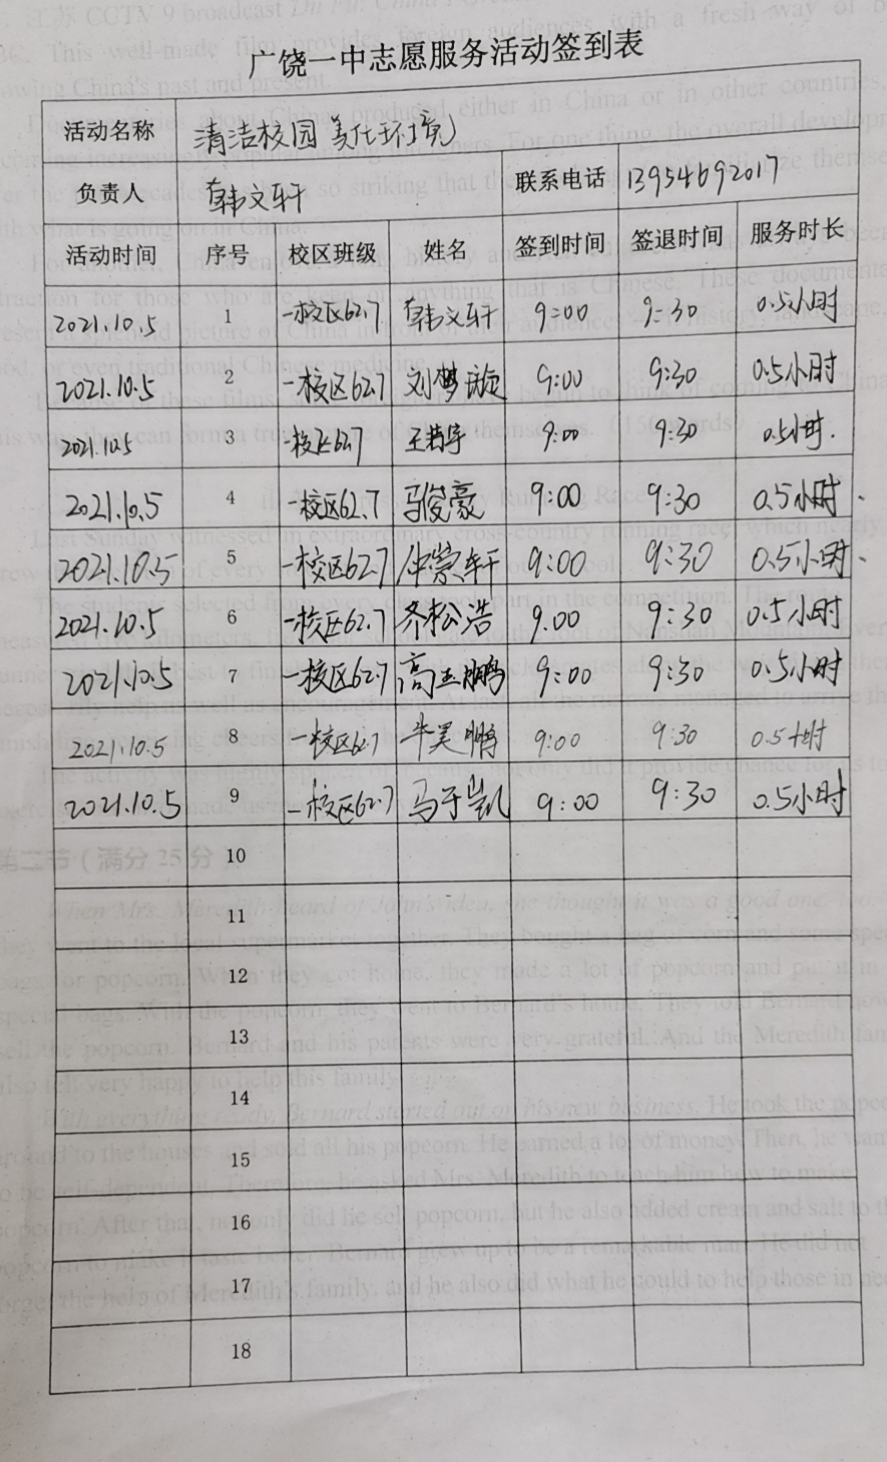 广饶一中志愿服务活动签到表
活动名称 清洁校园 美化环境
负责人 韩文轩 联系电话 13954692017
活动时间 序号 校区班级 姓名 签到时间 签退时间 服务时长
2021.10.5 1 一校区62.7 韩文轩 9:00 9:30 0.5小时
2021.10.5 2 一校区62.7 刘梦璇 9:00 9:30 0.5小时
2021.10.5 3 一校区62.7 9:00 9:30 0.5小时.
2021.10.5 4 一校区62.7 马俊豪 9:00 9:30 0.5小时.
2021.10.5 5 一校区62.7 仲崇轩 9:00 9:30 0.5小时.
2021.10.5 6 一校区62.7 齐松浩 9:00 9:30 0.5小时
2021.10.5 7 一校区62.7 高玉鹏 9:00 9:30 0.5小时
2021.10.5 8 一校区62.7 牛昊鹏 9:00 9:30 0.5小时
2021.10.5 9 一校区62.7 马子凯 9:00 9:30 0.5小时
10
11
12
13
14
15
16
17
18